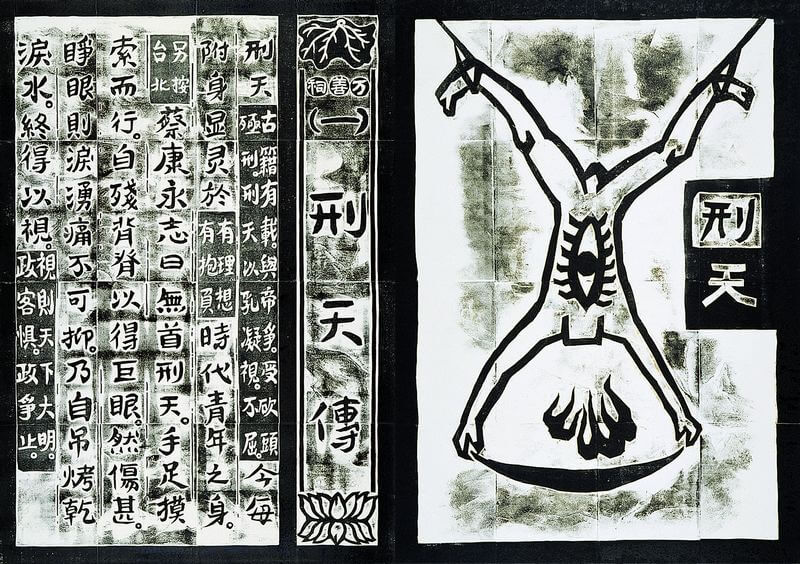 刑天
万善祠
(一)
刑天傳
刑天古籍有載。與帝爭。受砍頭殛刑。刑天以乳凝視。不屈。今每
附身显灵於有理想有抱負時代青年之身。
另按台北蔡康永志曰無首刑天。手足摸
索而行。自殘背脊以得巨眼。然傷甚。
睜眼則淚湧痛不可抑。乃自吊烤乾
淚水。終得以視。視則天下大明。政客惧。政爭止。